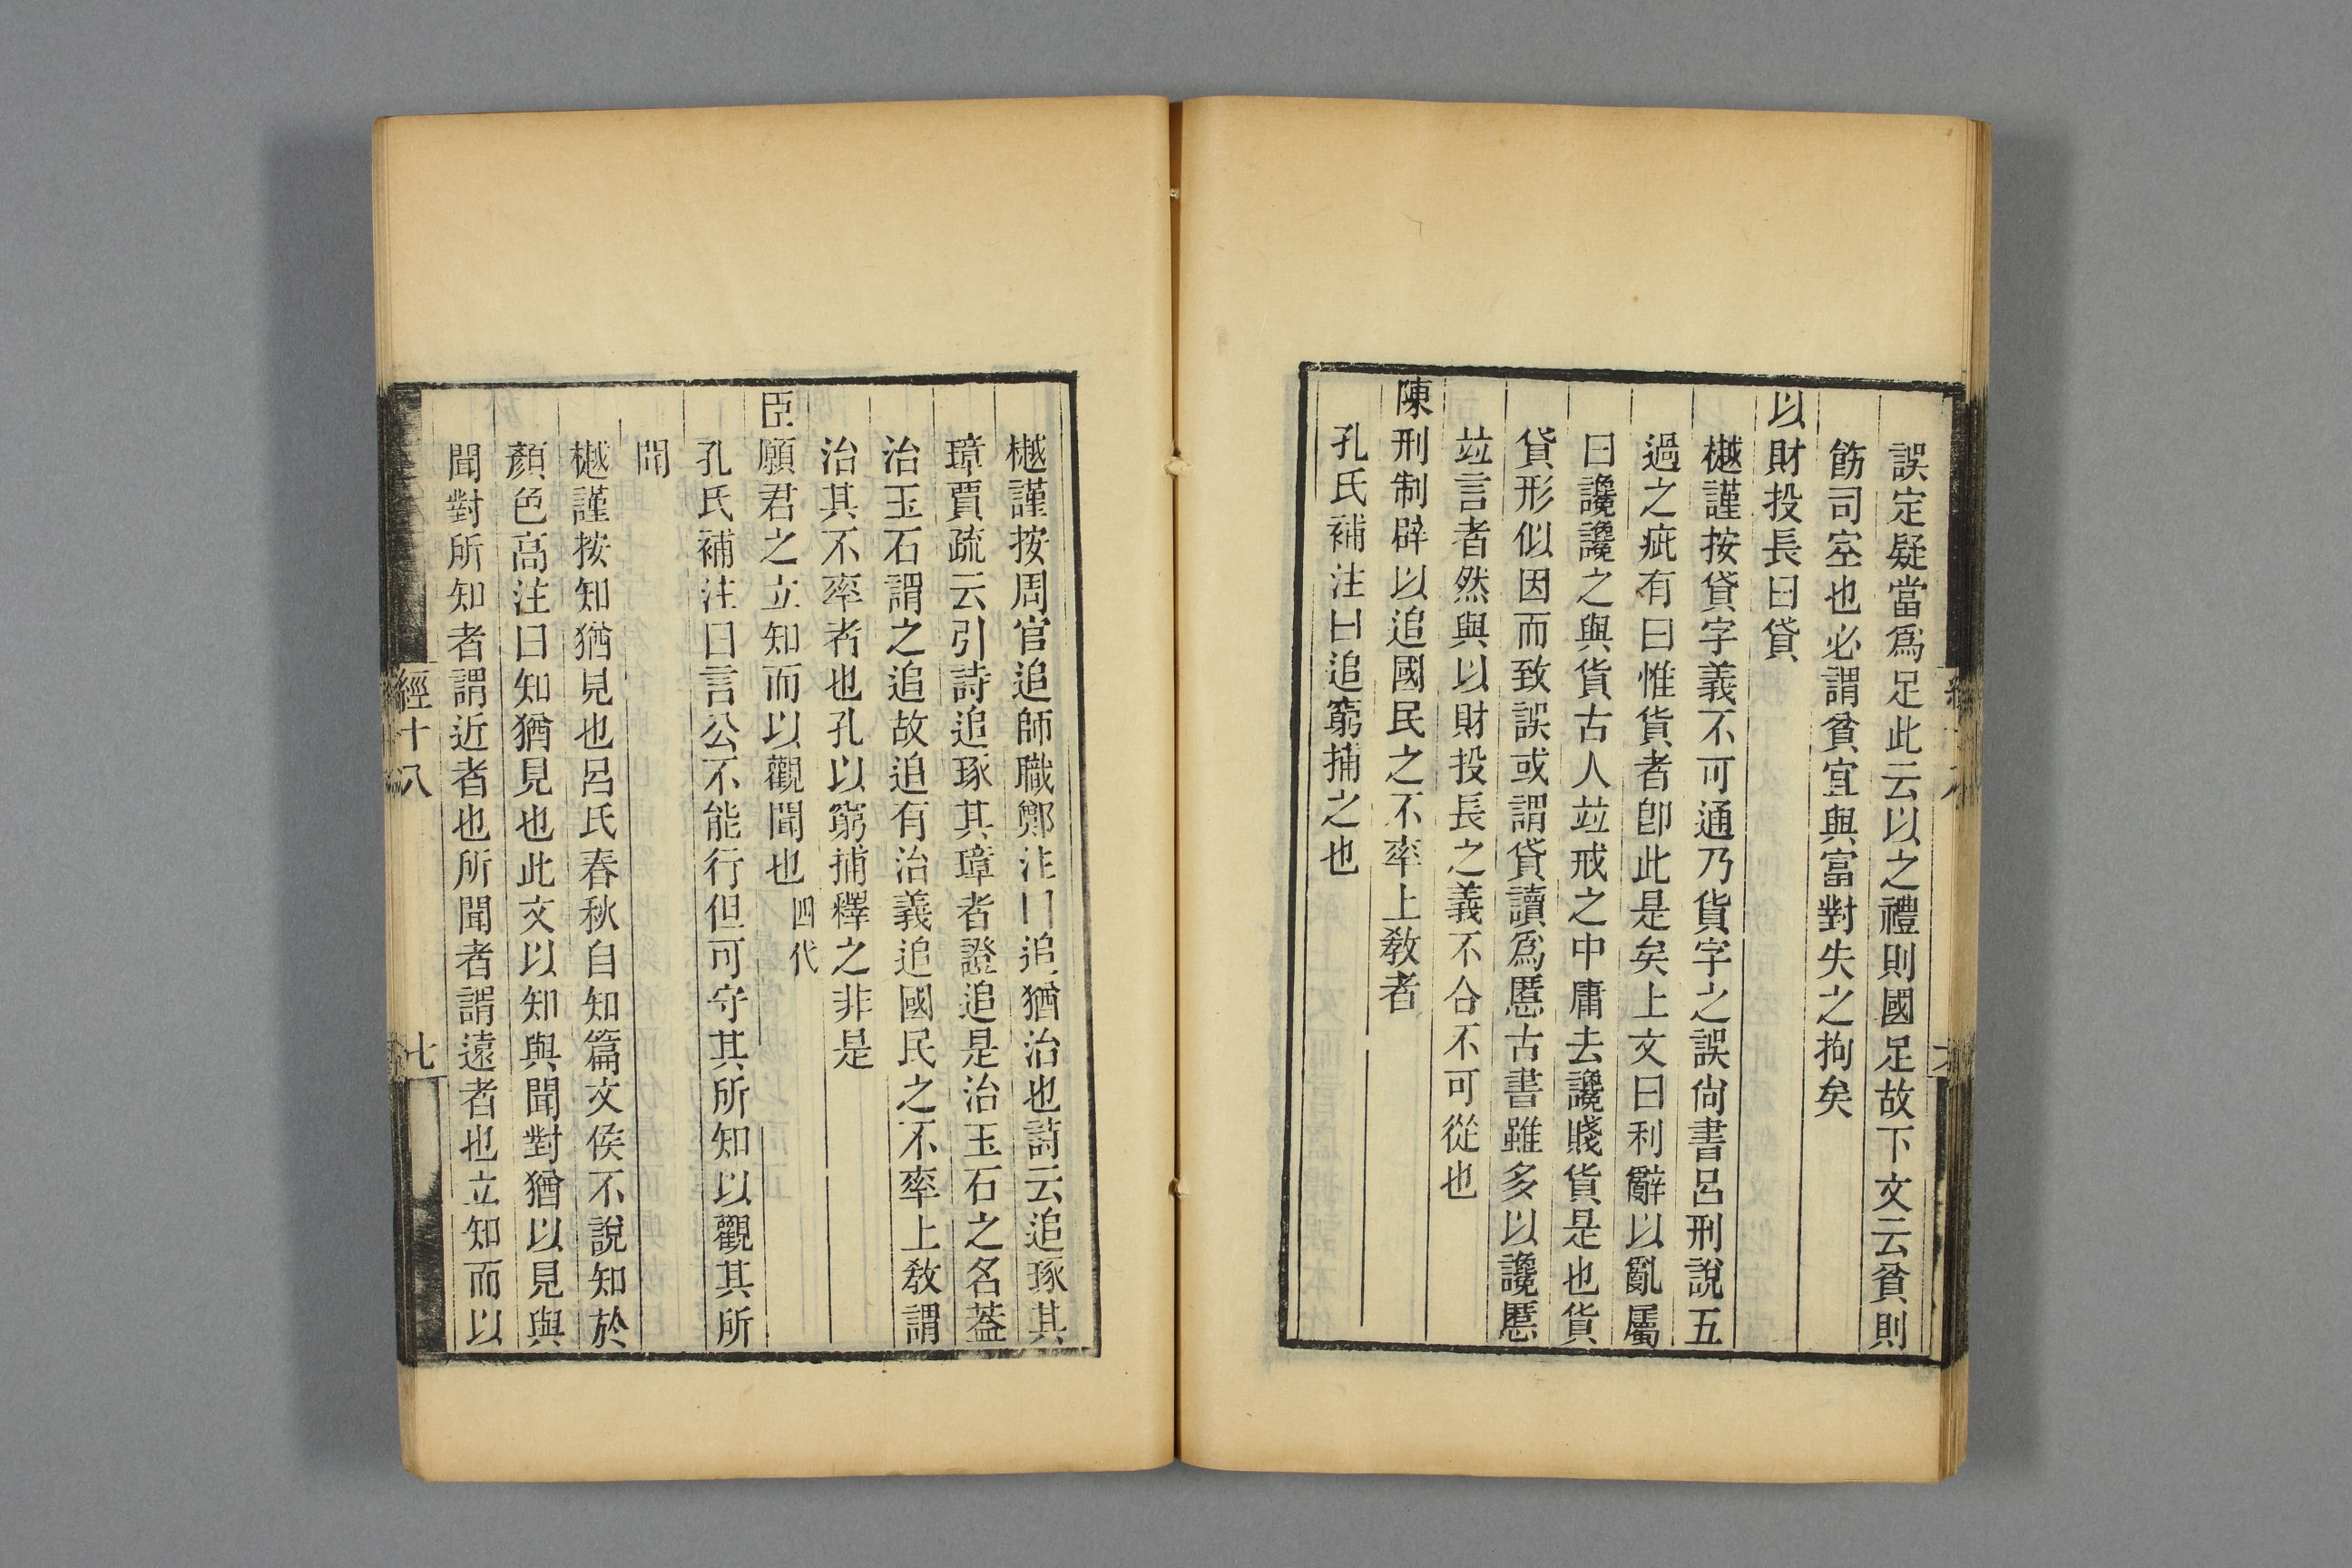 誤定疑當爲足此云以之禮則國足故下文云貧則
飭司空也必謂貧宜與富對失之拘矣
以財投長曰貸
樾謹按貸字義不可通乃貨字之誤尙書呂刑說五
過之疵有曰惟貨者卽此是矣上文曰利辭以亂屬
曰讒讒之與貨古人竝戒之中庸去讒賤貨是也貨
貸形似因而致誤或謂貸讀爲慝古書雖多以讒慝
竝言者然與以財投長之義不合不可從也
陳刑制辟以追國民之不率上敎者
孔氏補注曰追窮捕之也
樾謹按周官追師職鄭注曰追猶治也詩云追琢其
璋賈疏云引詩追琢其璋者證追是治玉石之名葢
治玉石謂之追故追有治義追國民之不率上敎謂
治其不率者也孔以窮捕釋之非是
臣願君之立知而以觀聞也 四代
孔氏補注曰言公不能行但可守其所知以觀其所
聞
樾謹按知猶見也呂氏春秋自知篇文侯不說知於
顏色高注曰知猶見也此文以知與聞對猶以見與
聞對所知者謂近者也所聞者謂遠者也立知而以
經十八
七